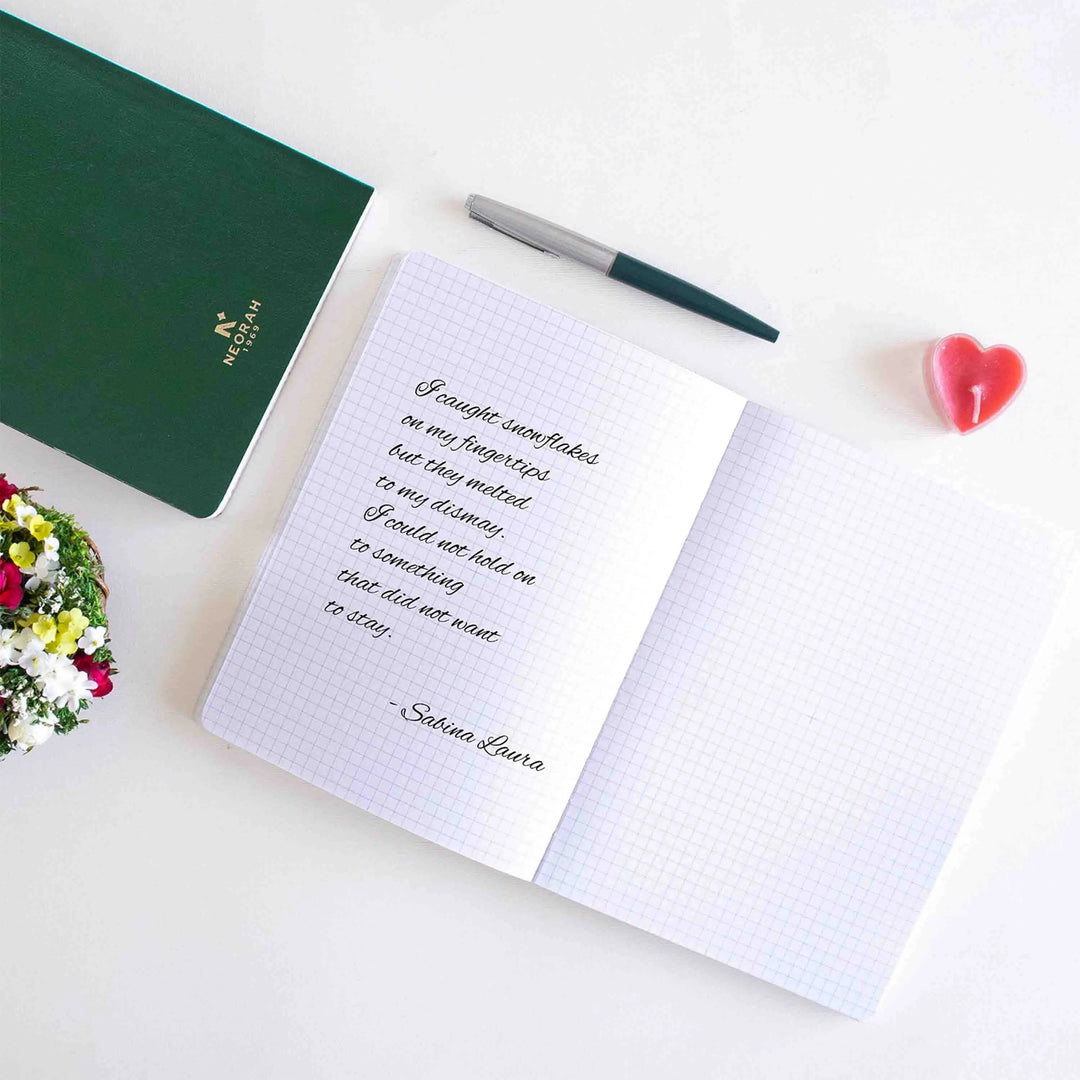 NEORAH
1969
I caught snowflakes
on my fingertips
but they melted
to my dismay.
I could not hold on
to something
that did not want
to stay.
- Sabina Laura